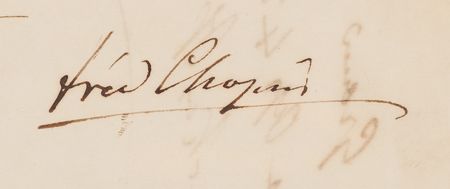 fréd Chopin